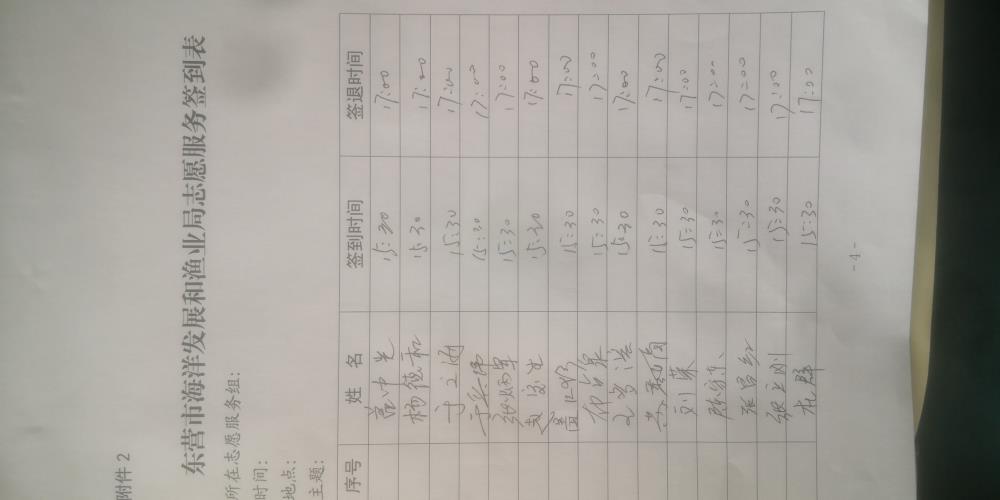 附件2
东营市海洋发展和渔业局志愿服务签到表
所在志愿服务组：
时间：
地点：
主题：
序号 姓 名 签到时间 签退时间
15:30 17:00
杨德和 15:30 17:00
15:30 17:00
15:30 17:00
张炳军 15:30 17:00
15:30 17:00
15:30 17:00
15:30 17:00
15:30 17:00
15:30 17:00
刘 莱 15:30 17:00
15:30 17:00
张昌红 15:30 17:00
张立刚 15:30 17:00
杜群 15:30 17:00
- 4 -